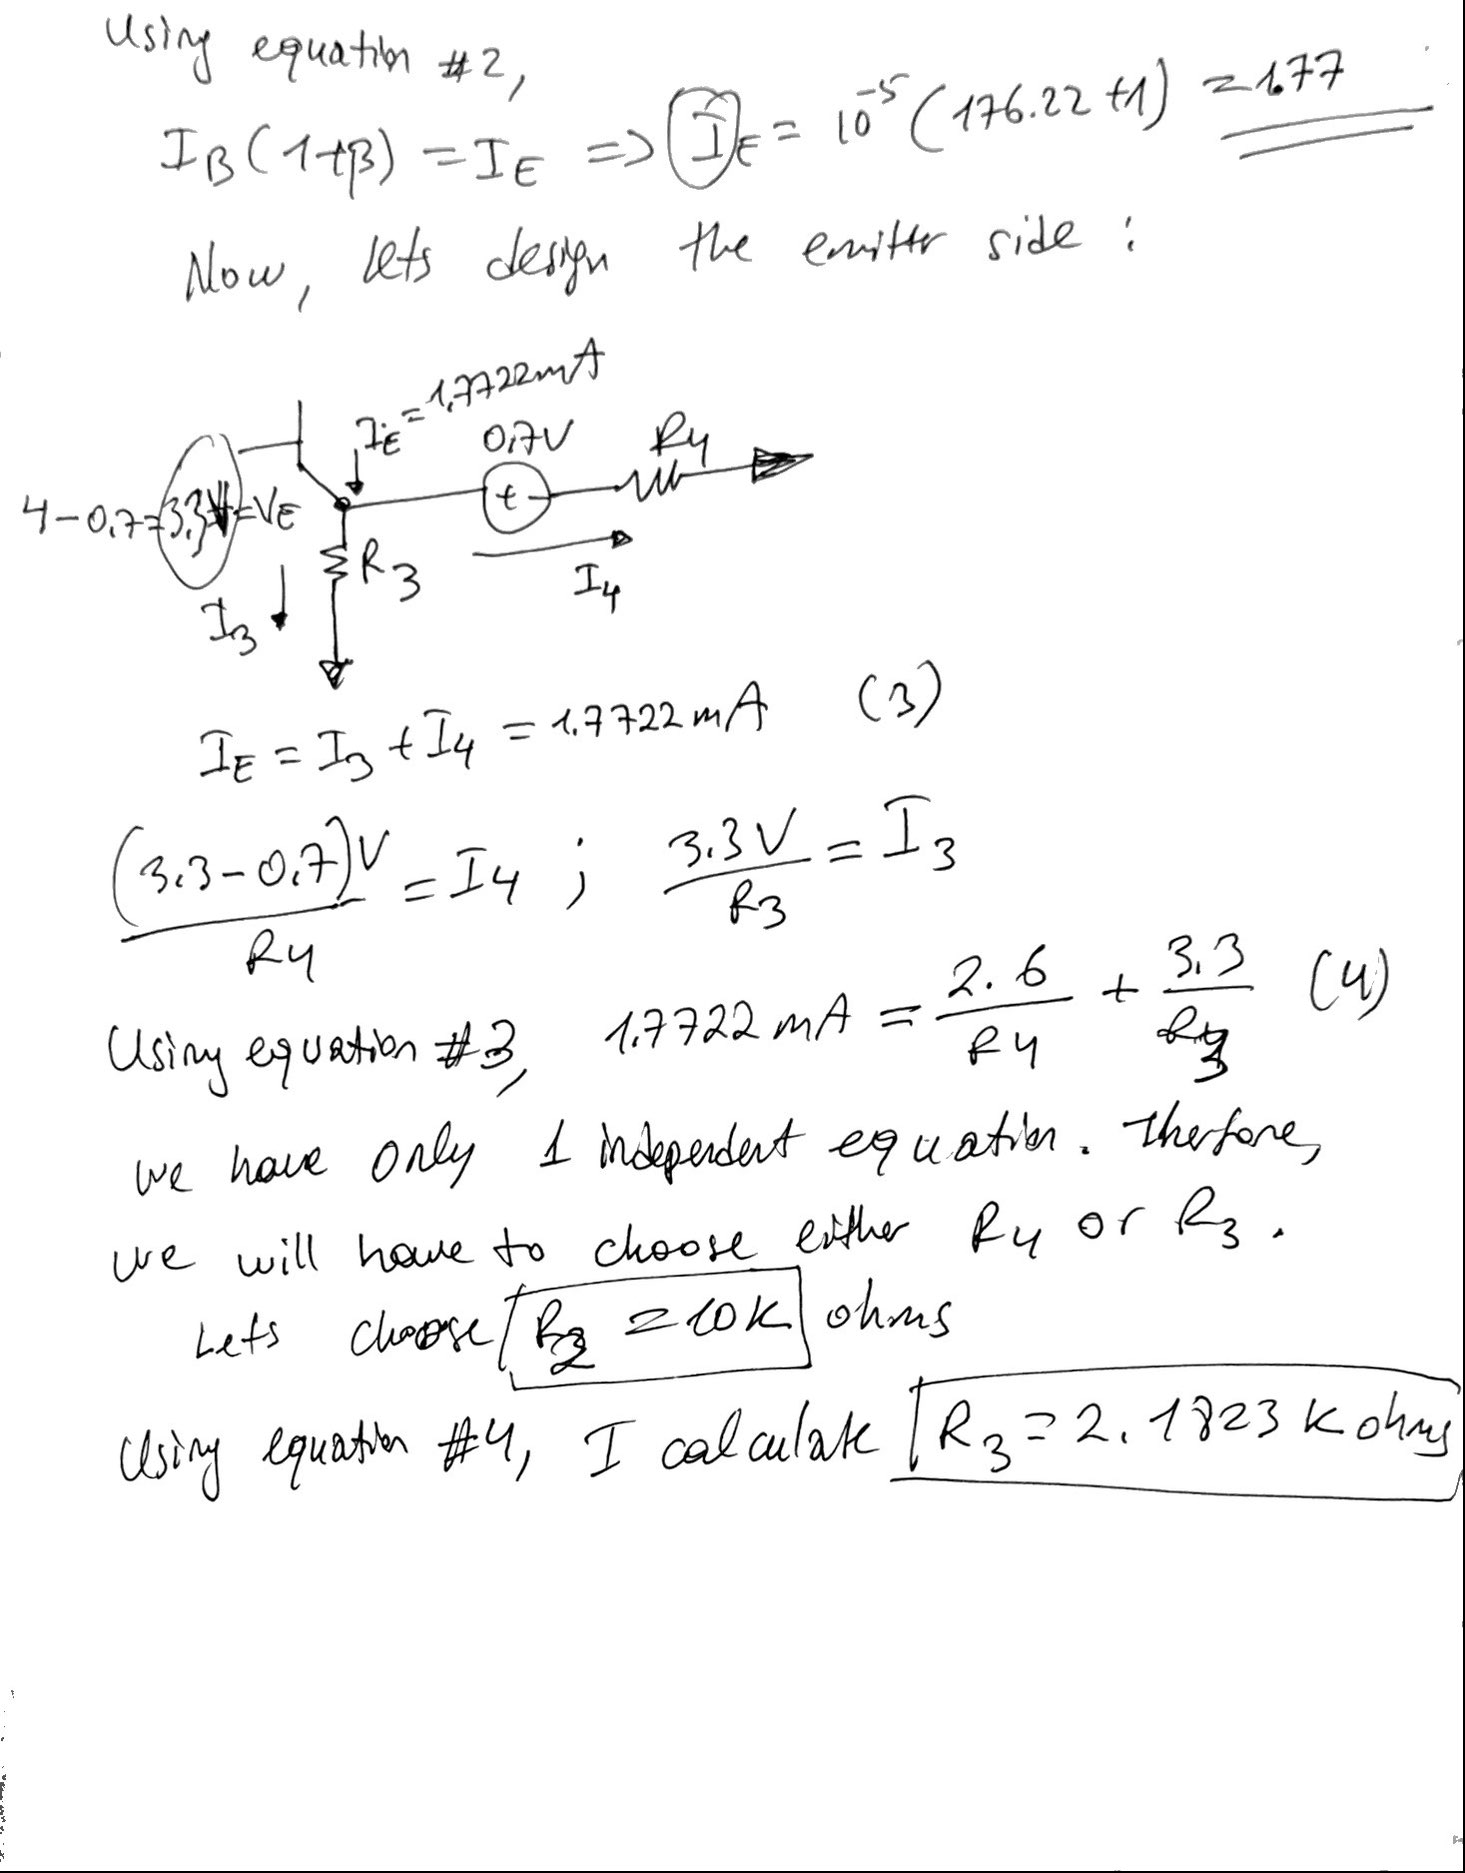 Using equation #2,
I_B(1+β) = I_E => I_E = 10^-5 (176.22+1) = 1.77
Now, lets design the emitter side :
I_E = 1.7722mA
0.7V R4
4-0.7=3.3V=V_E
+ -
R3
I4
I3
I_E = I3 + I4 = 1.7722mA (3)
(3.3-0.7)V / R4 = I4 ; 3.3V / R3 = I3
Using equation #3, 1.7722mA = 2.6 / R4 + 3.3 / R3 (4)
we have only 1 independent equation. Therfore,
we will have to choose either R4 or R3.
Lets choose = 10K ohms
Using equation #4, I calculate R3 = 2.1823 K ohms